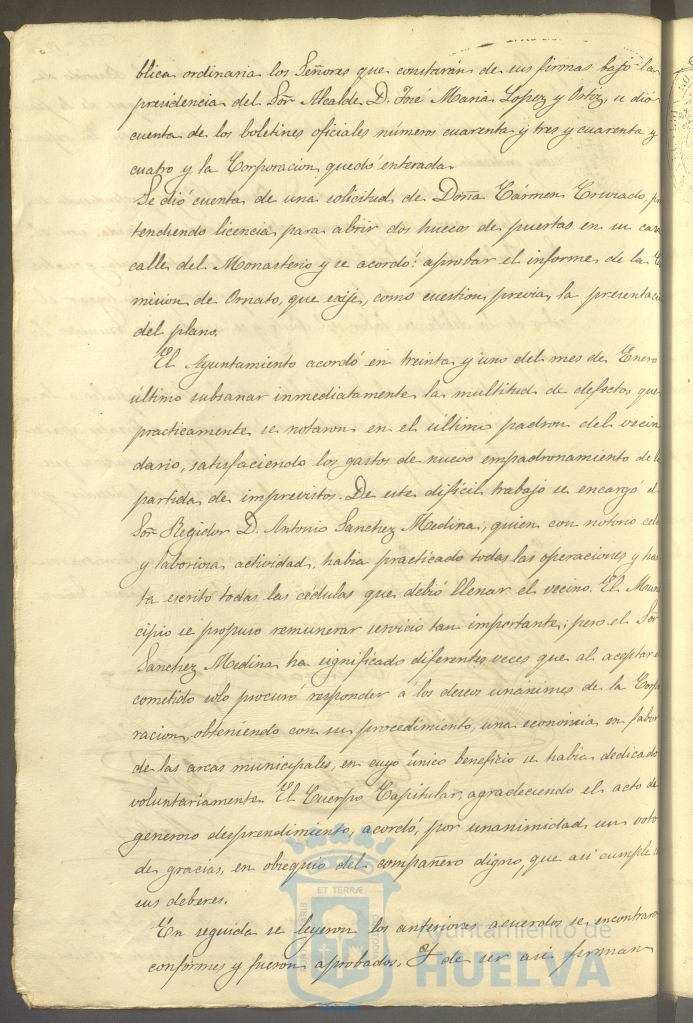 blica ordinaria los Señores que constarán de sus firmas bajo la
presidencia del Sor. Alcalde D. José Maria Lopez y Ortiz, se dió
cuenta de los boletines oficiales números cuarenta y tres y cuarenta y
cuatro y la Corporacion quedó enterada.
Se dió cuenta de una solicitud de Doña Cármen Cruzado, pre
tendiendo licencia para abrir dos huecos de puertas en su casa
calle del Monasterio y se acordó: aprobar el informe de la Co
mision de Ornato, que exije, como cuestion previa, la presentacion
del plano.
El Ayuntamiento acordó en treinta y uno del mes de Enero
último subsanar inmediatamente la multitud de defectos que
practicamente se notaron en el último padron del vecin
dario, satisfaciendo los gastos de nuevo empadronamiento de la
partida de imprevistos. De este dificil trabajo se encargó el
Sor. Regidor D. Antonio Sanchez Medina, quien con notorio celo
y laboriosa actividad, habia practicado todas las operaciones y has
ta escrito todas las cédulas que debió llenar el vecino. El Muni
cipio se propuso remunerar servicio tan importante; pero el Sor.
Sanchez Medina ha significado diferentes veces que al aceptar el
cometido solo procuró responder á los deseos unánimes de la Corpo
racion, obteniendo con su procedimiento, una economia en fabor
de las arcas municipales, en cuyo único beneficio se habia dedicado
voluntariamente. El Cuerpo Capitular, agradeciendo el acto de
generoso desprendimiento, acordó, por unanimidad, un voto
de gracias, en obsequio del compañero digno, que asi cumple
sus deberes.
En seguida se leyeron los anteriores acuerdos se encontraron
conformes y fueron aprobados. Y de ser asi firman
ET TERRÆ
Ayuntamiento de
HUELVA